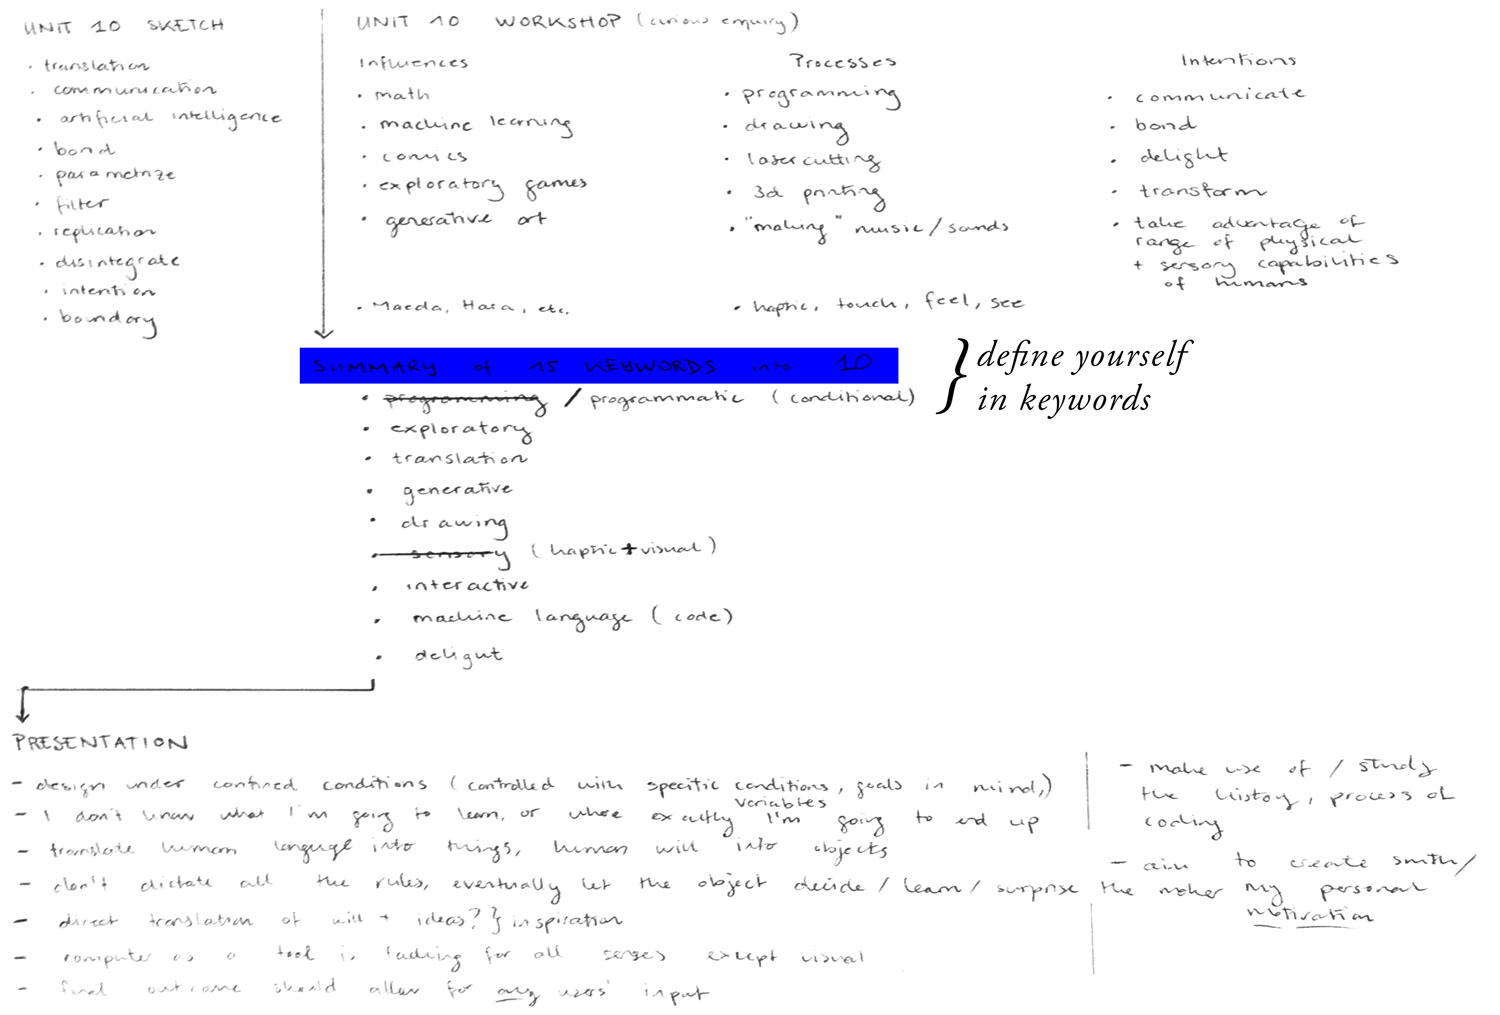 UNIT 10 SKETCH
• translation
• communication
• artificial intelligence
• bond
• parametrize
• filter
• replication
• disintegrate
• intention
• boundary
UNIT 10 WORKSHOP (curious enquiry)
Influences
• math
• machine learning
• comics
• exploratory games
• generative art
• Maeda, Hara, etc.
Processes
• programming
• drawing
• lasercutting
• 3d printing
• "making" music/sounds
• haptic, touch, feel, see
Intentions
• communicate
• bond
• delight
• transform
• take advantage of
range of physical
+ sensory capabilities
of humans
SUMMARY of 15 KEYWORDS into 10
• programming / programmatic (conditional)
• exploratory
• translation
• generative
• drawing
• sensory (haptic+visual)
• interactive
• machine language (code)
• delight
} define yourself
in keywords
PRESENTATION
- design under confined conditions (controlled with specific conditions, goals in mind,)
variables
- I don't know what I'm going to learn, or where exactly I'm going to end up
- translate human language into things, human will into objects
- don't dictate all the rules, eventually let the object decide / learn / surprise the maker
- direct translation of will + ideas? } inspiration
- computer as a tool is lacking for all senses except visual
- final outcome should allow for any users' input
- make use of / study
the history, process of
coding
- aim to create smth/
my personal
motivation